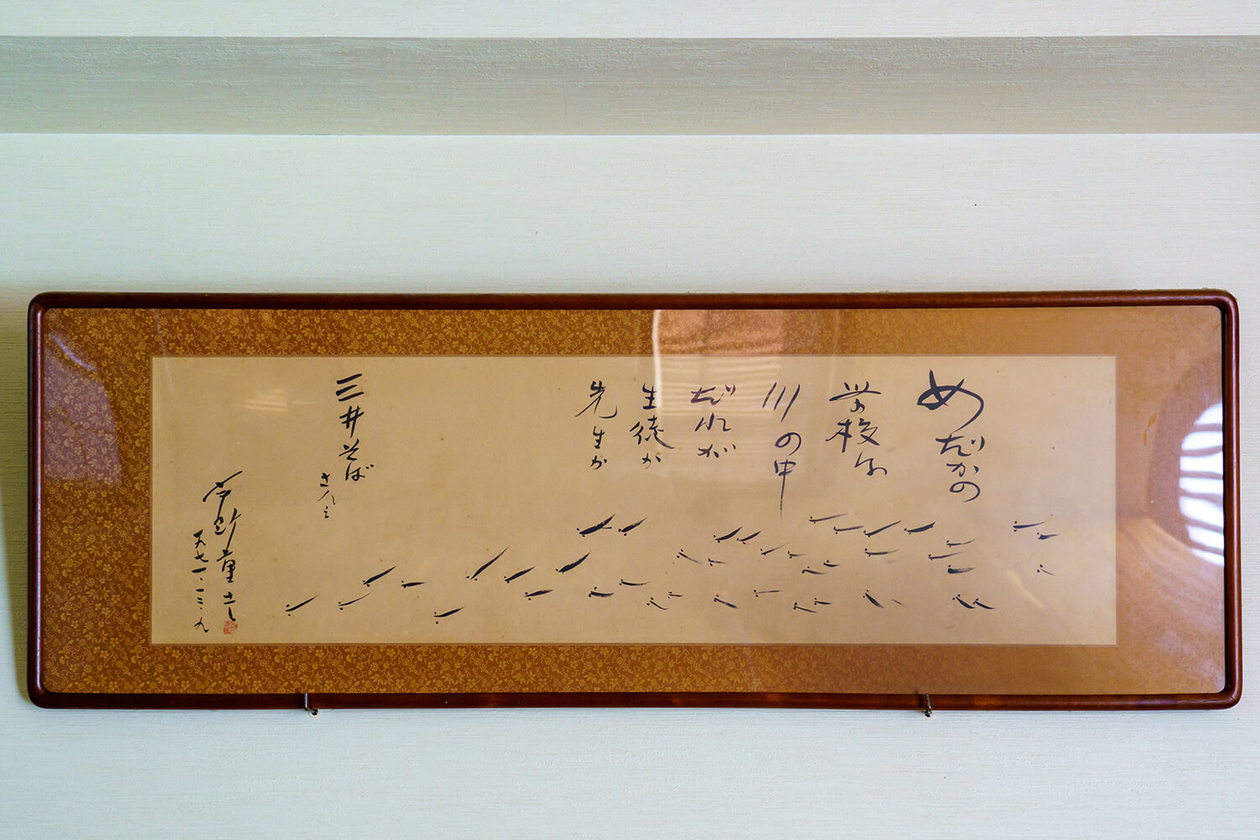 めだかの
学校が
川の中
だれが
生徒か
先生か
三井そば
さんへ